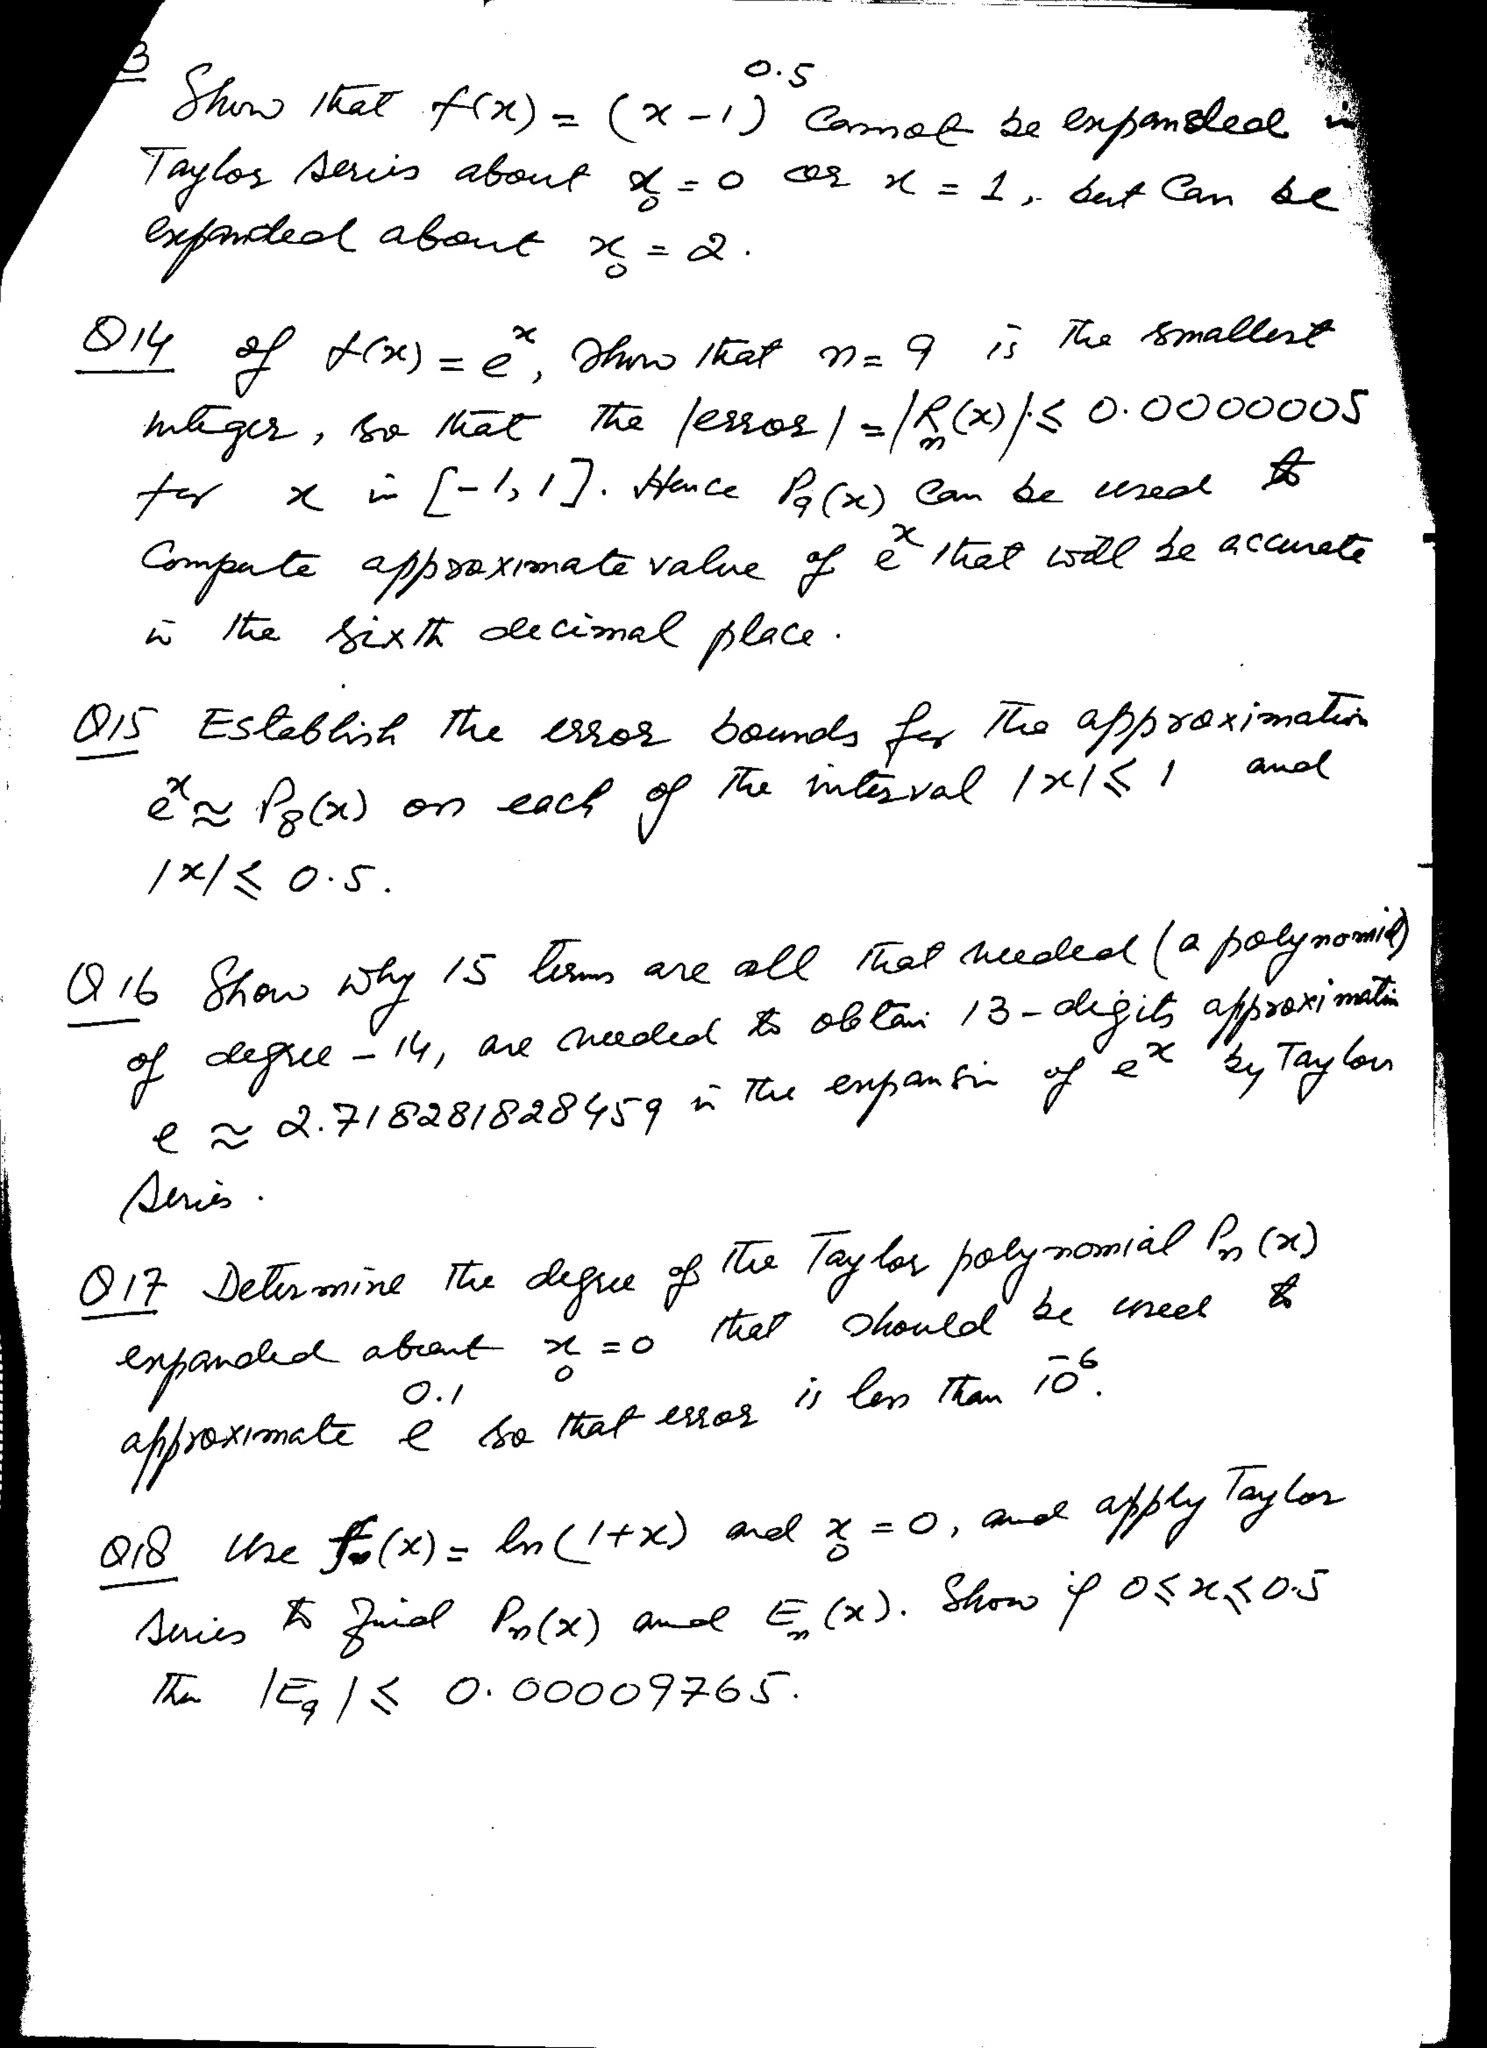 3
Show that f(x) = (x-1)^0.5 Cannot be expanded in
Taylor series about x₀ = 0 or x = 1, but Can be
expanded about x₀ = 2.
Q14 If f(x) = eˣ, show that n = 9 is the smallest
integer, so that the |error| = |Rₙ(x)| ≤ 0.0000005
for x in [-1, 1]. Hence P₉(x) Can be used to
Compute approximate value of eˣ that will be accurate
in the sixth decimal place.
Q15 Establish the error bounds for the approximation
eˣ ≈ P₈(x) on each of the interval |x| ≤ 1 and
|x| ≤ 0.5.
Q16 Show why 15 terms are all that needed (a polynomial)
of degree-14, are needed to obtain 13-digits approximation
e ≈ 2.718281828459 in the expansion of eˣ by Taylor
series.
Q17 Determine the degree of the Taylor polynomial Pₙ(x)
expanded about x₀ = 0 that should be used to
approximate e^0.1 so that error is less than 10⁻⁶.
Q18 Use f(x) = ln(1+x) and x₀ = 0, and apply Taylor
series to find Pₙ(x) and Eₙ(x). Show if 0 ≤ x ≤ 0.5
then |E₉| ≤ 0.00009765.